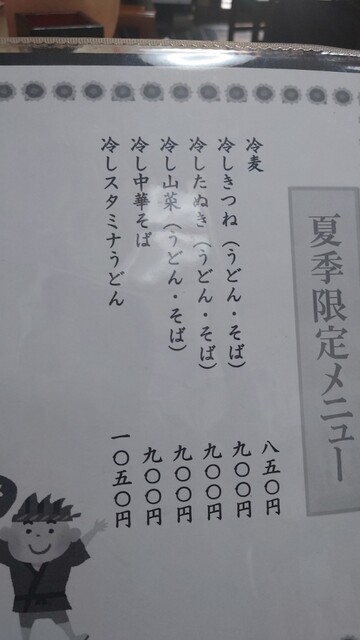 夏季限定メニュー
冷麦 八五〇円
冷しきつね（うどん・そば） 九〇〇円
冷したぬき（うどん・そば） 九〇〇円
冷し山菜（うどん・そば） 九〇〇円
冷し中華そば 九〇〇円
冷しスタミナうどん 一〇五〇円